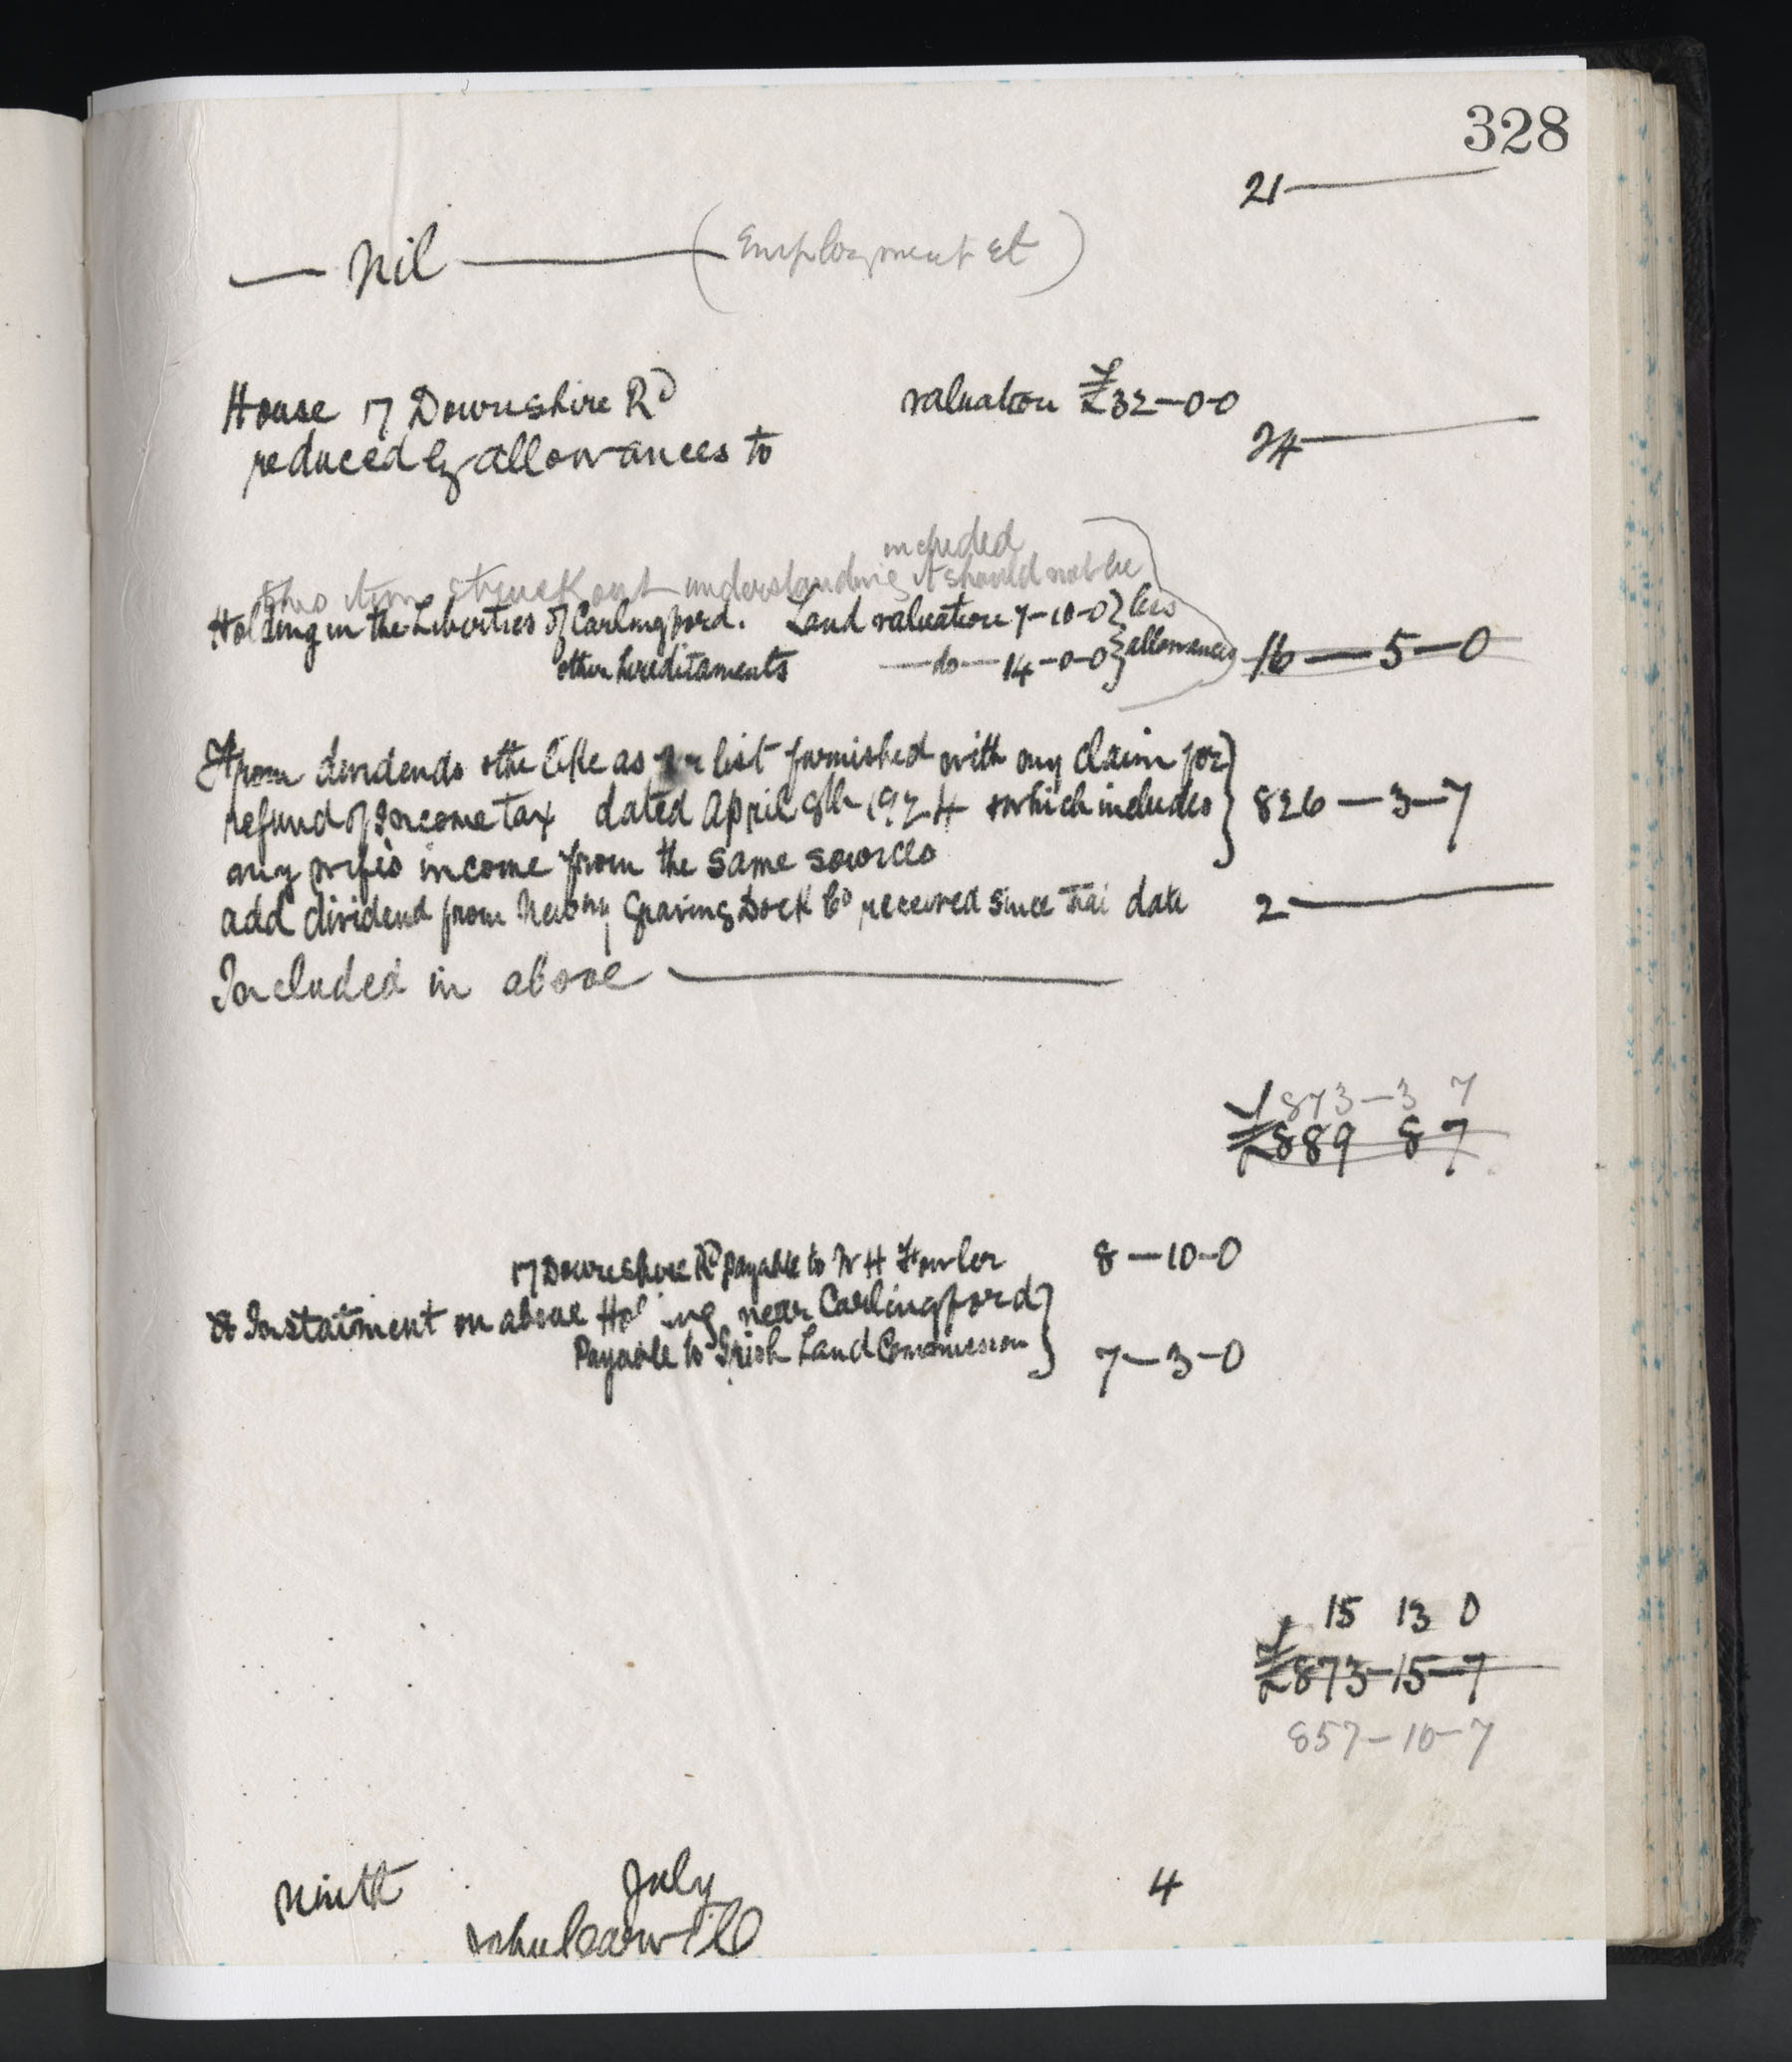 328
21 ———
— Nil ——— (Employment etc)
House 17 Downshire Rd valuation £32-0-0
reduced by allowances to 24 ———
included
this item struck out understanding it should not be
Holding in the Liberties of Carlingford. Land valuation 7-10-0 } less
other hereditaments —do— 14-0-0 } allowances 16—5—0
From dividends & the like as per list furnished with my claim for
refund of Income tax dated April 8th 1924 & which includes } 826—3—7
my wife's income from the same sources
add dividend from Newry Graving Dock Co received since that date 2 ———
Included in above ———
873—3 7
£889 8 7
17 Downshire Rd payable to W H Fowler 8—10-0
& Instalment on above Holding near Carlingford }
Payable to Irish Land Commission } 7—3—0
15 13 0
£873-15-7
857-10-7
Ninth July 4